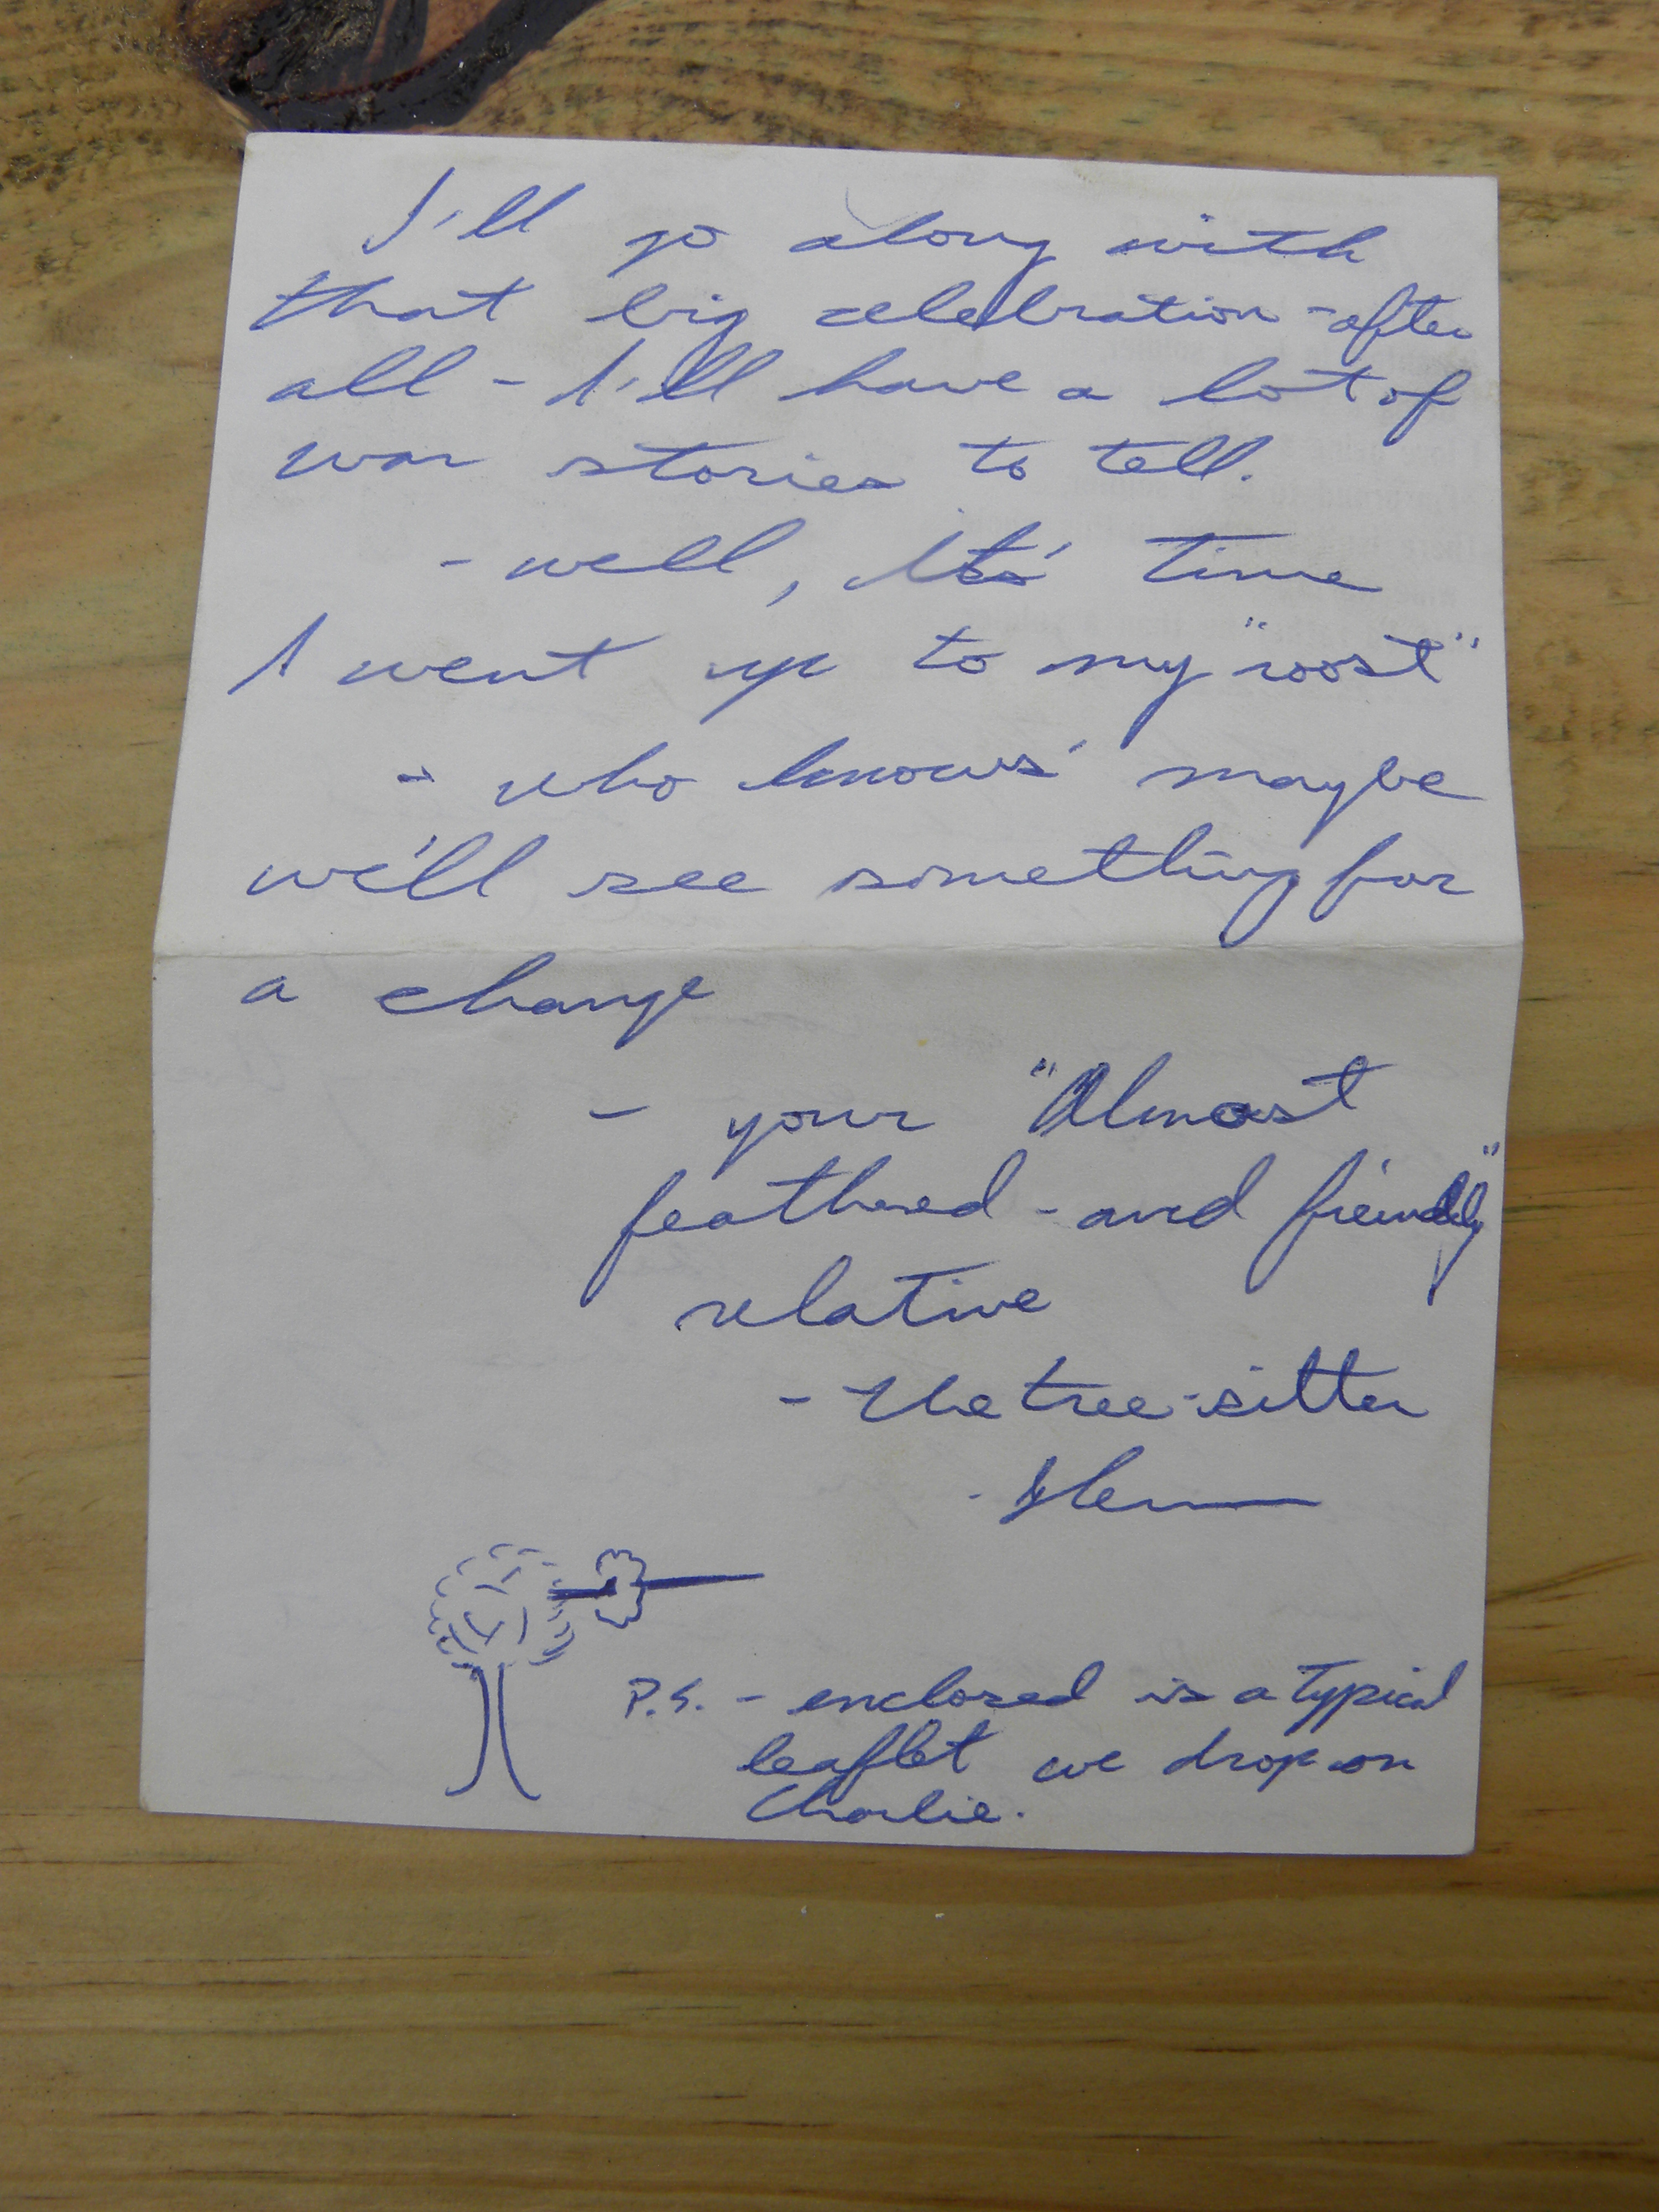 I'll go along with
that big celebration - after
all - I'll have a lot of
war stories to tell.
- well, Its' time
I went up to my "roost"
- who knows' maybe
we'll see something for
a change
- your "Almost
feathered - and friendly"
relative
- the tree-sitter
P.S. - enclosed is a typical
leaflet we drop on
Charlie.